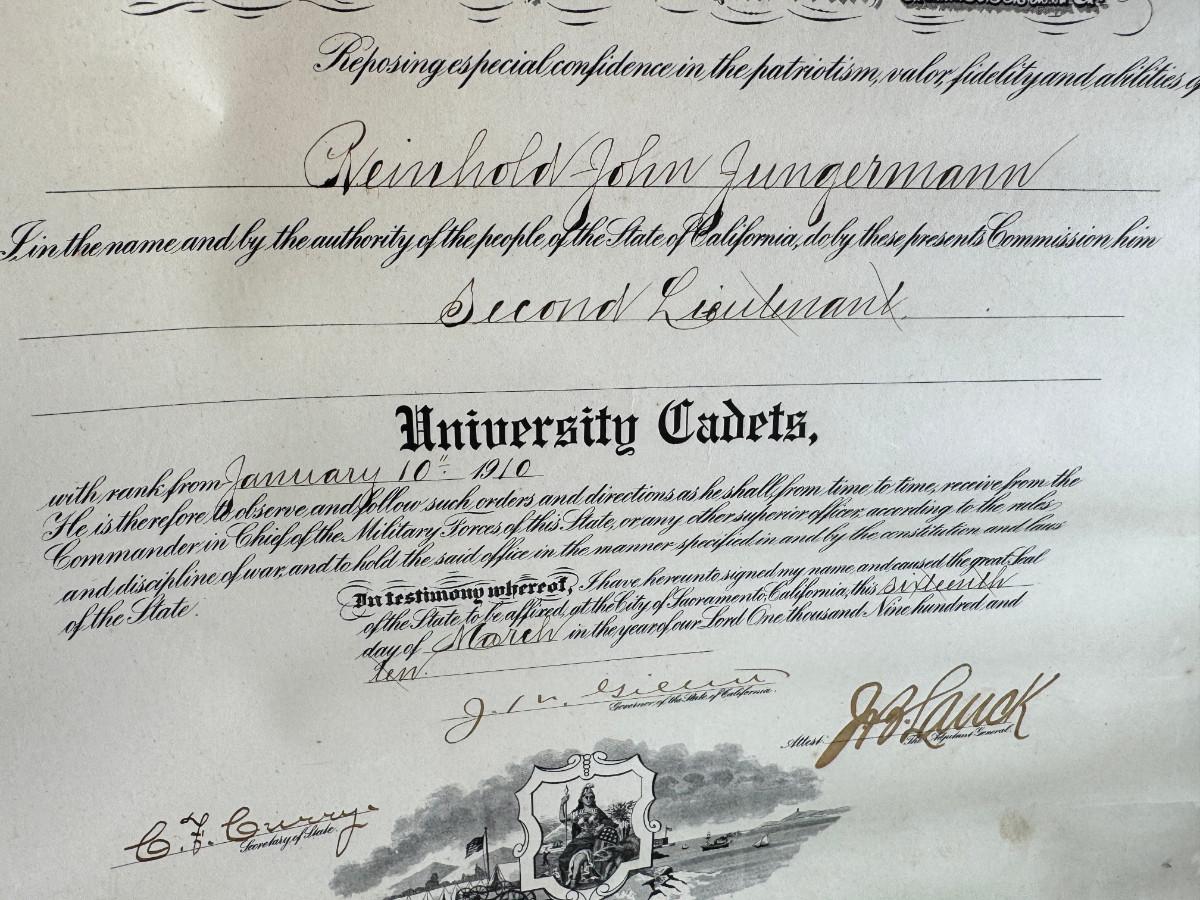 Reposing especial confidence in the patriotism, valor, fidelity and abilities of
Reinhold John Jungermann
I in the name and by the authority of the people of the State of California, do by these presents Commission him
Second Lieutenant
University Cadets,
with rank from January 10th 1910
He is therefore to observe and follow such orders and directions as he shall from time to time, receive from the
Commander in Chief of the Military Forces of this State, or any other superior officer, according to the rules
and discipline of war, and to hold the said office in the manner specified in and by the constitution and laws
of the State.
In testimony whereof, I have hereunto signed my name and caused the great Seal
of the State to be affixed, at the City of Sacramento, California, this sixteenth
day of March in the year of our Lord One thousand Nine hundred and
ten.
Governor of the State of California.
Attest: J.B. Lauck
The Adjutant General.
C. F. Curry
Secretary of State